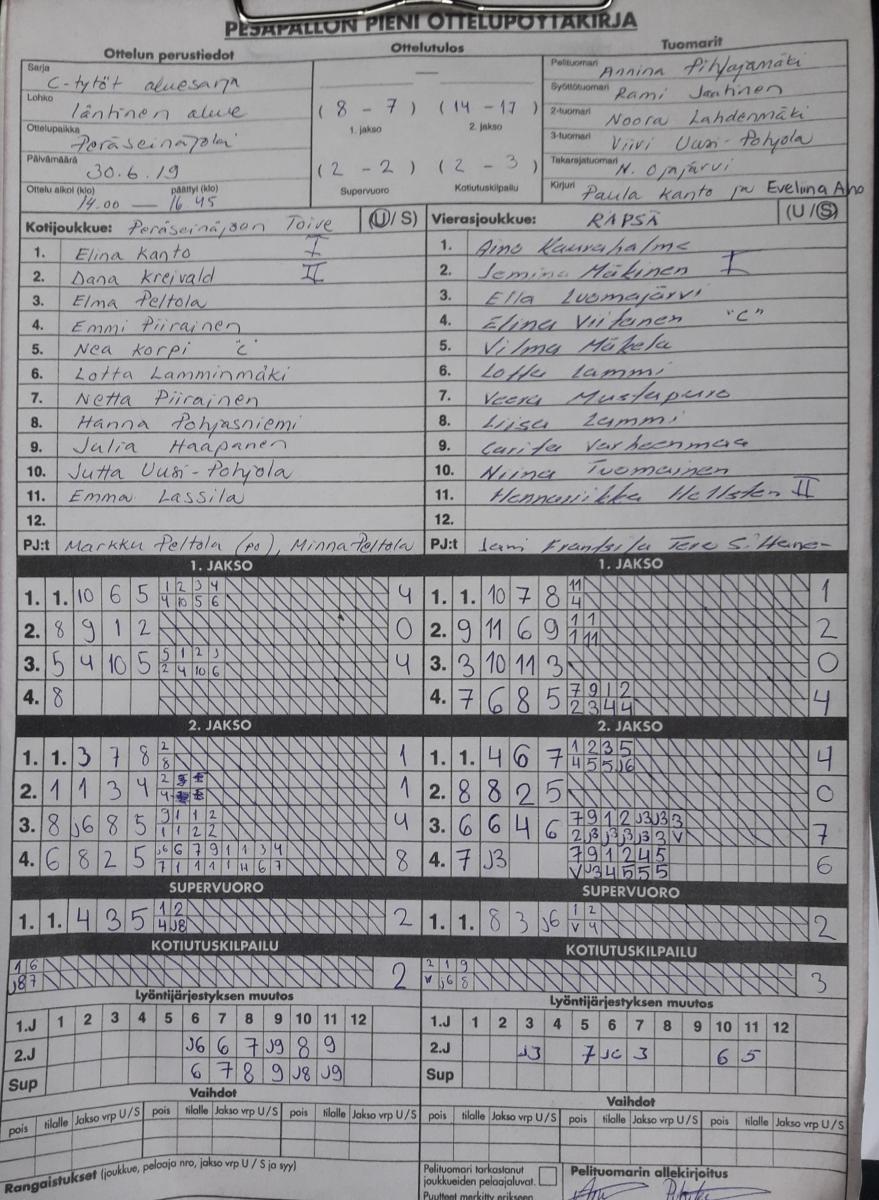 PESÄPALLON PIENI OTTELUPÖYTÄKIRJA
Ottelun perustiedot Ottelutulos Tuomarit
Sarja C-tytöt aluesarja
Lohko läntinen alue
Ottelupaikka Peräseinäjoki
Päivämäärä 30.6.19
Ottelu alkoi (klo) päättyi (klo)
14.00 — 16.45
—
( 8 - 7 ) ( 14 - 17 )
1. jakso 2. jakso
( 2 - 2 ) ( 2 - 3 )
Supervuoro Kotiutuskilpailu
Pelituomari Annina Pihlajamäki
Syöttötuomari Rami Jantinen
2-tuomari Noora Lahdenmäki
3-tuomari Viivi Uusi-Pohjola
Takarajatuomari N. Ojajärvi
Kirjuri Paula Kanto ja Eveliina Aho
Kotijoukkue: Peräseinäjoen Toive (U/S)
1. Elina Kanto I
2. Dana Kreivald II
3. Elma Peltola
4. Emmi Piirainen
5. Nea Korpi "C"
6. Lotta Lamminmäki
7. Netta Piirainen
8. Hanna Pohjasniemi
9. Julia Haapanen
10. Jutta Uusi-Pohjola
11. Emma Lassila
12.
PJ:t Markku Peltola (po), Minna Peltola
Vierasjoukkue: RÄPSÄ (U/S)
1. Aino Kaurahalme
2. Jemina Mäkinen I
3. Ella Luomajärvi
4. Elina Viitanen "C"
5. Vilma Mäkelä
6. Lotta Lammi
7. Veera Mustapuro
8. Liisa Lammi
9. Carita
10. Niina Tuomainen
11. Hennariikka Hellsten II
12.
PJ:t
1. JAKSO 1. JAKSO
1. 1. 10 6 5 1 2 3 4 4
4 10 5 6
2. 8 9 1 2 0
3. 5 4 10 5 5 1 2 3 4
2 4 10 6
4. 8
1. 1. 10 7 8 11 1
4
2. 9 11 6 9 1 1 2
1 11
3. 3 10 11 3 0
4. 7 6 8 5 7 9 1 2 4
2 3 4 4
2. JAKSO 2. JAKSO
1. 1. 3 7 8 2 1
8
2. 1 1 3 4 2 1
4
3. 8 J6 8 5 9 1 1 2 4
1 1 2 2
4. 6 8 2 5 J6 6 7 9 1 1 3 4 8
7 1 1 1 1 4 6 7
1. 1. 4 6 7 1 2 3 5 4
4 5 5 J6
2. 8 8 2 5 0
3. 6 6 4 6 7 9 1 2 J3 J3 3 7
2 J3 J3 J3 3 3 V
4. 7 J3 7 9 1 2 4 5 6
V J3 4 5 5 5
SUPERVUORO SUPERVUORO
1. 1. 4 3 5 1 2 2
4 J8
1. 1. 8 3 J6 1 2 2
V 4
KOTIUTUSKILPAILU KOTIUTUSKILPAILU
1 6 2
J8 7
2 1 9 3
V J6 8
Lyöntijärjestyksen muutos Lyöntijärjestyksen muutos
1.J 1 2 3 4 5 6 7 8 9 10 11 12
2.J J6 6 7 J9 8 9
Sup 6 7 8 9 J8 J9
1.J 1 2 3 4 5 6 7 8 9 10 11 12
2.J J3 7 J6 3 6 5
Sup
Vaihdot Vaihdot
pois tilalle Jakso vrp U/S pois tilalle Jakso vrp U/S pois tilalle Jakso vrp U/S
pois tilalle Jakso vrp U/S pois tilalle Jakso vrp U/S pois tilalle Jakso vrp U/S
Rangaistukset (joukkue, pelaaja nro, jakso vrp U/S ja syy)
Pelituomari tarkastanut
joukkueiden pelaajaluvat.
Puutteet merkitty erikseen
Pelituomarin allekirjoitus